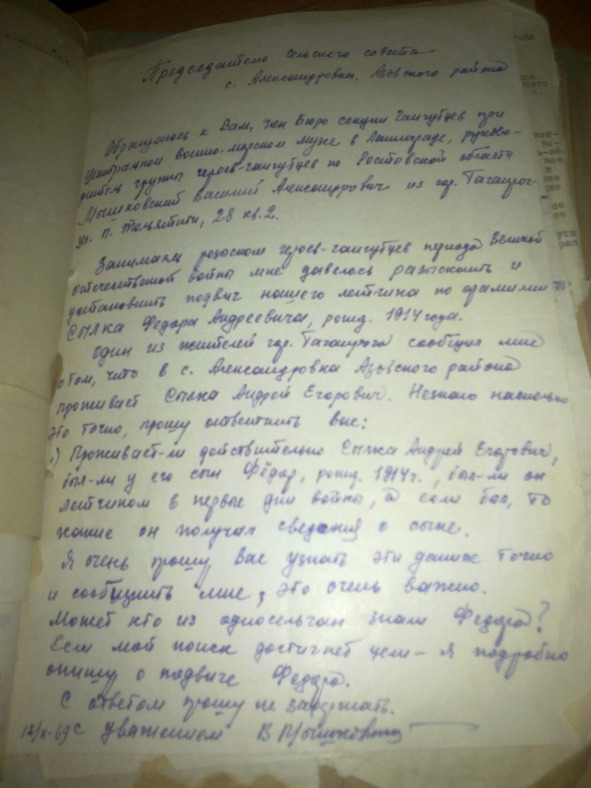 Председателю сельского совета
с. Александровка, Азовского района
Обращаюсь к Вам, член Бюро секции Гангутцев при
Центральном военно-морском музее в Ленинграде, руково-
дитель группы героев-гангутцев по Ростовской области
Мышковский Василий Александрович из гор. Таганрог-
ул. П. Тольятти, 28 кв. 2.
Занимаясь розыском героев-гангутцев периода Великой
отечественной войны мне довелось разыскать и
установить подвиг нашего летчика по фамилии
Сылка Федора Андреевича, рожд. 1914 года.
Один из жителей гор. Таганрога сообщил мне
о том, что в с. Александровка Азовского района
проживает Сылка Андрей Егорович. Незнаю насколько
это точно, прошу ответить вас:
1) Проживает-ли действительно Сылка Андрей Егорович,
был-ли у его сын Фёдор, рожд. 1914 г., был-ли он
летчиком в первые дни войны, а если был, то
какие он получал сведения о сыне.
Я очень прошу Вас узнать эти данные точно
и сообщить мне, это очень важно.
Может кто из односельчан знали Федора?
Если мой поиск достигнет цели - я подробно
опишу о подвиге Федора.
С ответом прошу не задержать.
12/X-69 С уважением В Мышковский